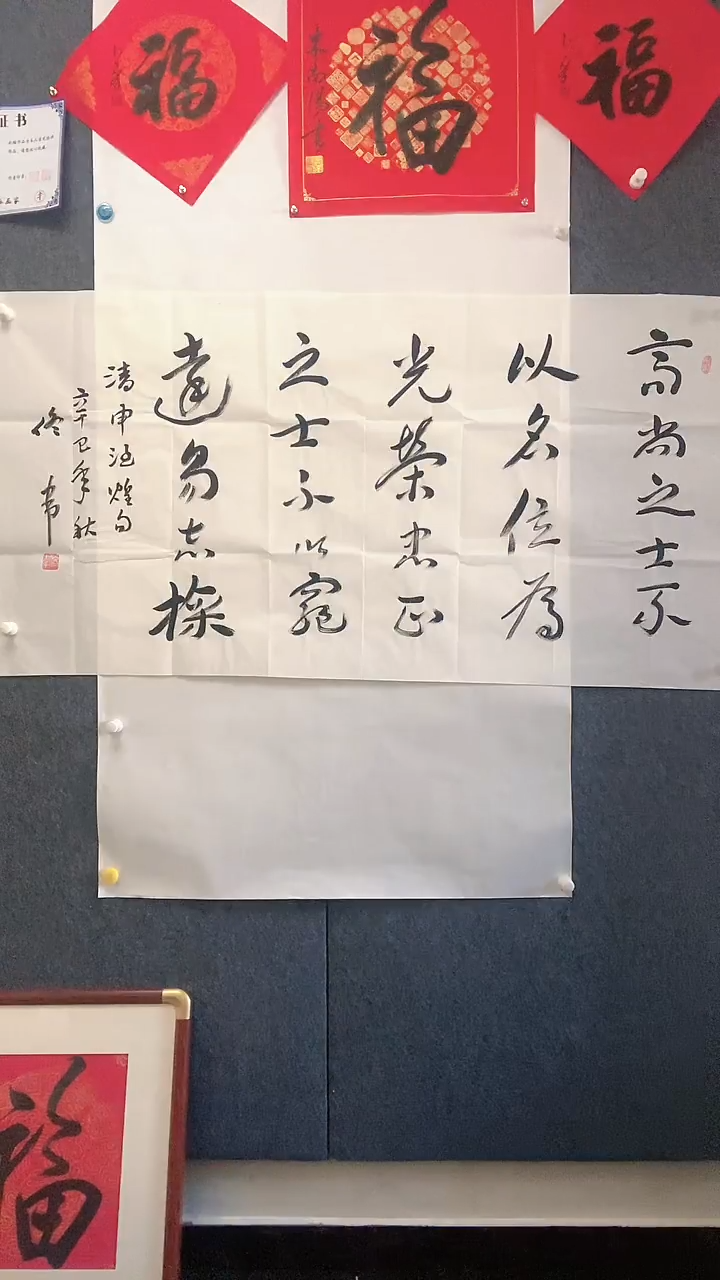 福
福
福
证书
高尚之士不
以名位為
光荣忠正
之士不以窮
達易志操
清申涵煜句
巳年秋
福